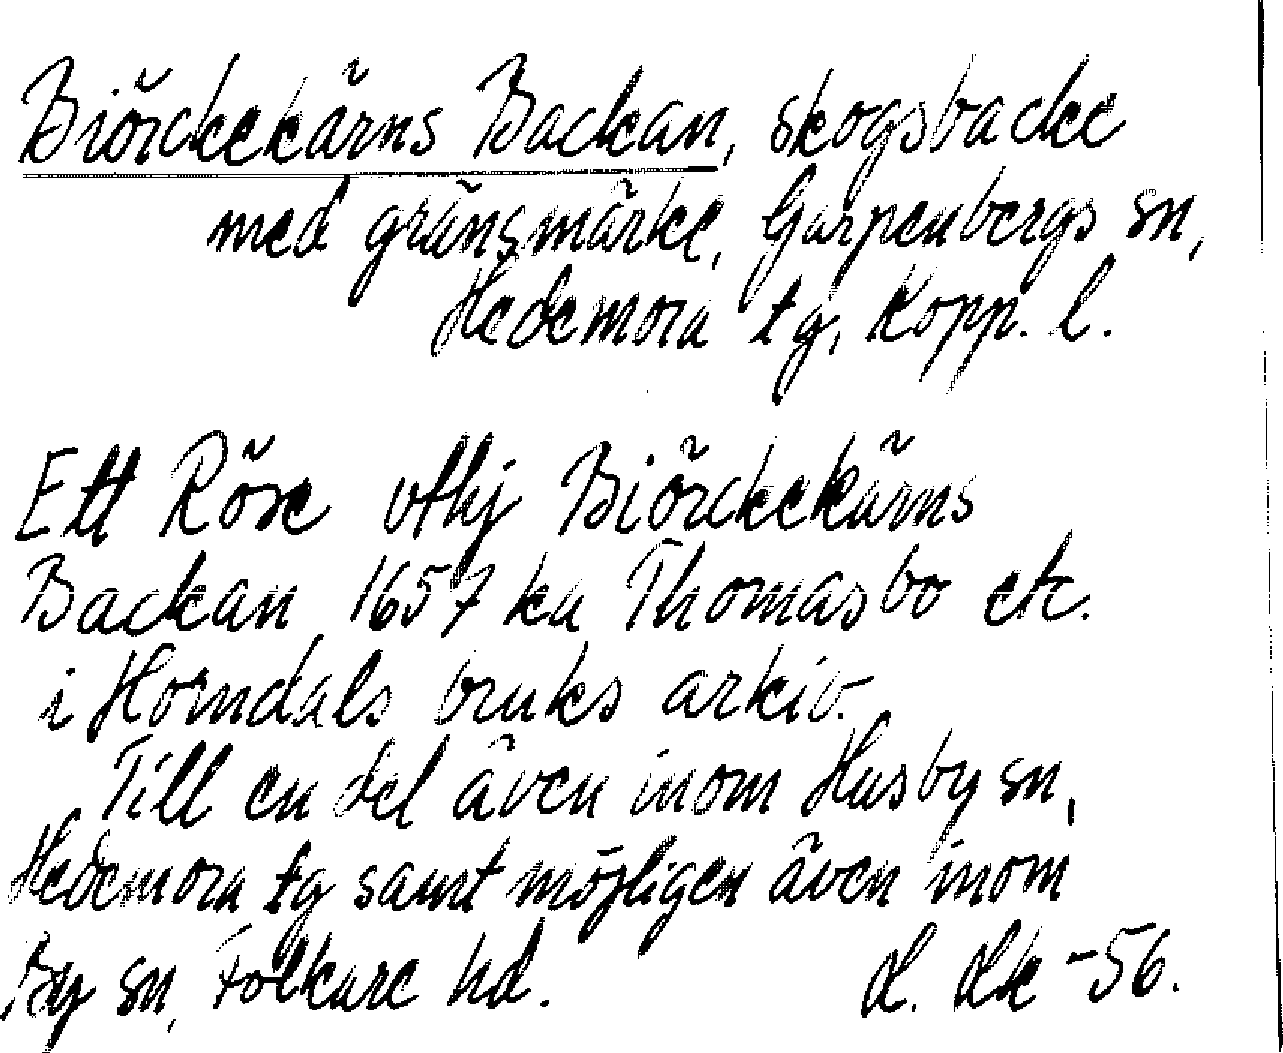 Biörckekärns Backan, skogsbacke
med gränsmärke, Garpenbergs sn,
Hedemora tg, Kopp. l.
Ett Röse vthj Biörckekärns
Backan 1657 ka Thomasbo etc.
i Horndals bruks arkiv.
Till en del även inom Husby sn,
Hedemora tg samt möjligen även inom
By sn, Folkare hd. -56.